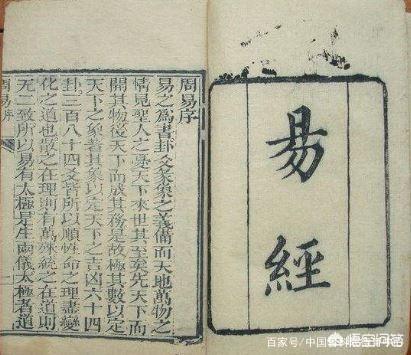 易經
周易序
易之為書卦爻彖象之義備而天地萬物之
情見聖人之憂天下來世其至矣先天下而
開其物後天下而成其務是故極其數以定
天下之象著其象以定天下之吉凶六十四
卦三百八十四爻皆所以順性命之理盡變
化之道也散之在理則有萬殊統之在道則
无二致所以易有太極是生兩儀太極者道
周易序
百家号/中国
悟空问答